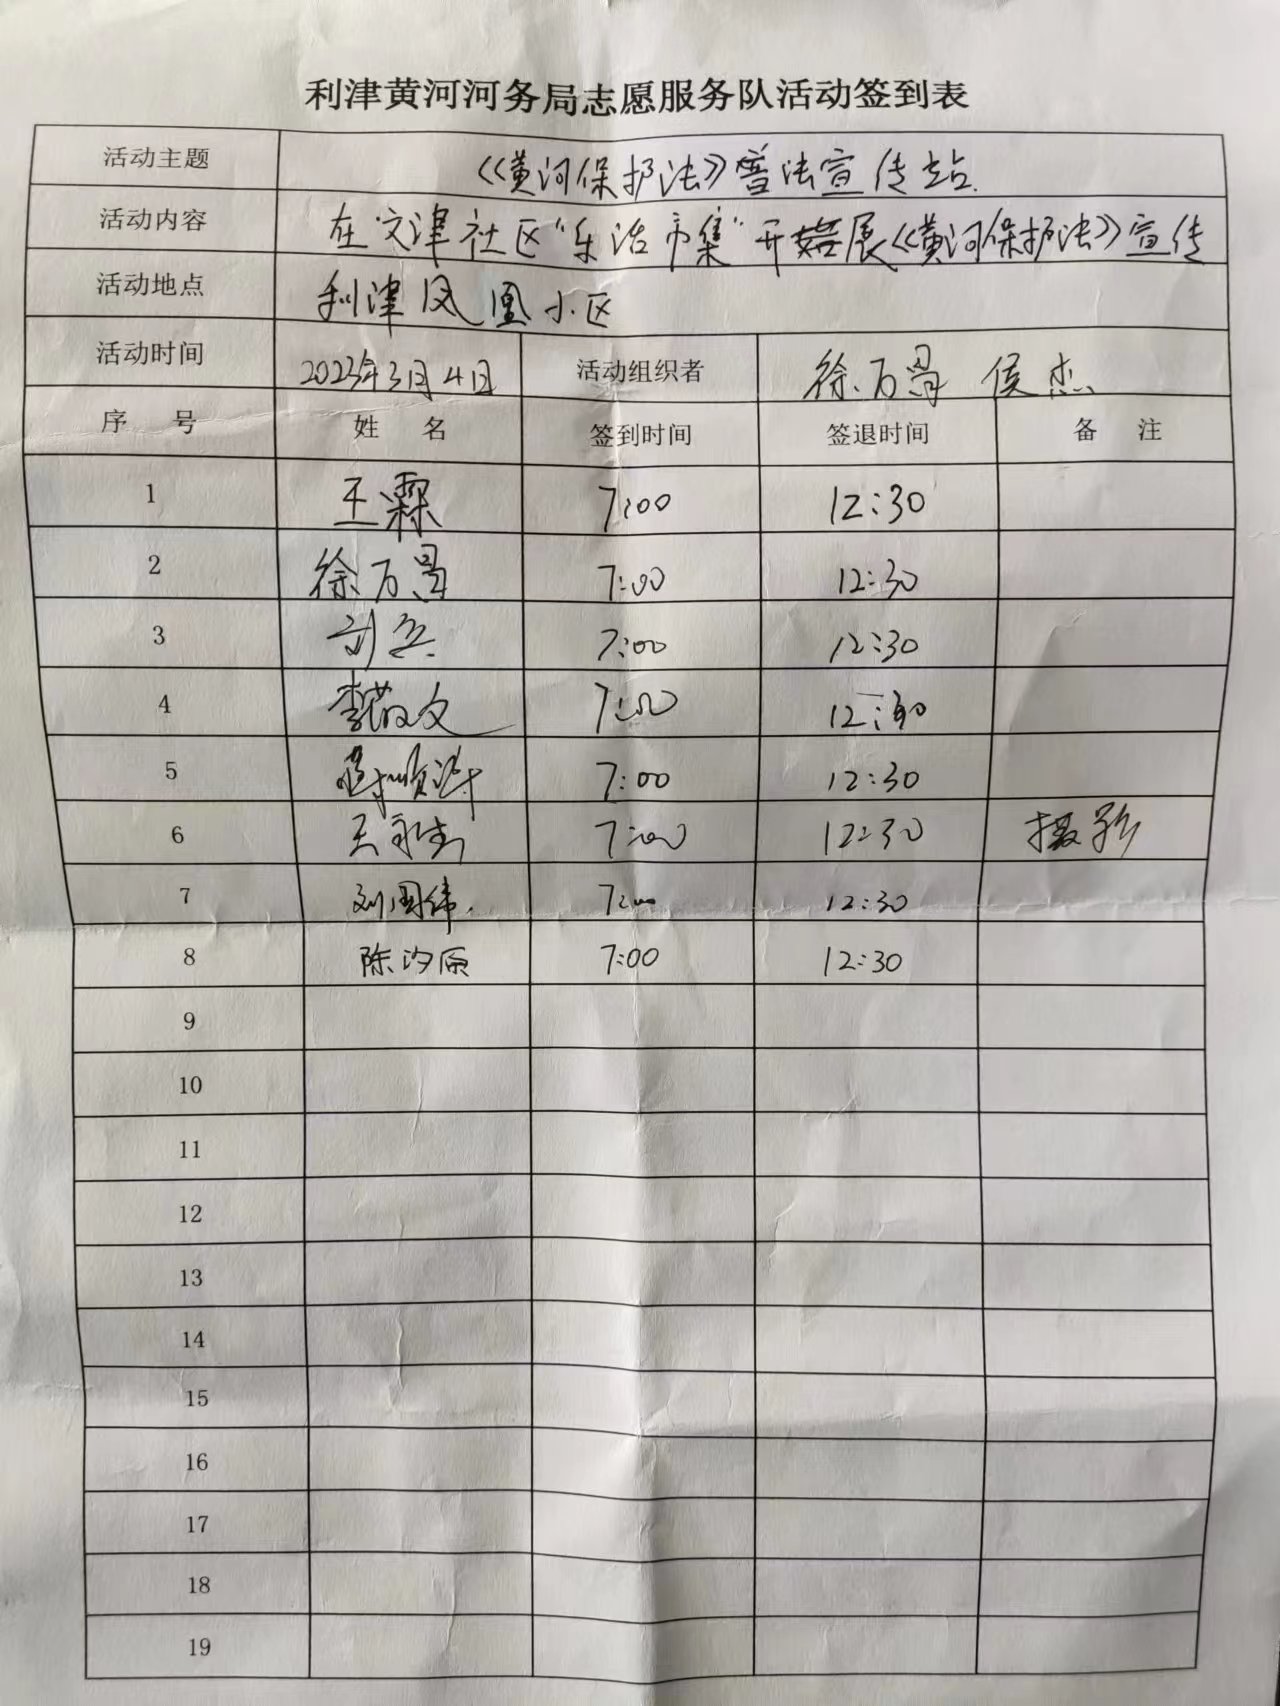 利津黄河河务局志愿服务队活动签到表
活动主题 《黄河保护法》普法宣传站
活动内容 在文津社区"乐活市集"开展《黄河保护法》宣传
活动地点 利津凤凰小区
活动时间 2023年3月4日 活动组织者 徐万昌 侯杰
序号 姓名 签到时间 签退时间 备注
1 王霖 7:00 12:30
2 徐万昌 7:00 12:30
3 刘兵 7:00 12:30
4 李敬文 7:00 12:30
5 7:00 12:30
6 7:00 12:30 摄影
7 刘国伟 7:00 12:30
8 陈汐原 7:00 12:30
9
10
11
12
13
14
15
16
17
18
19